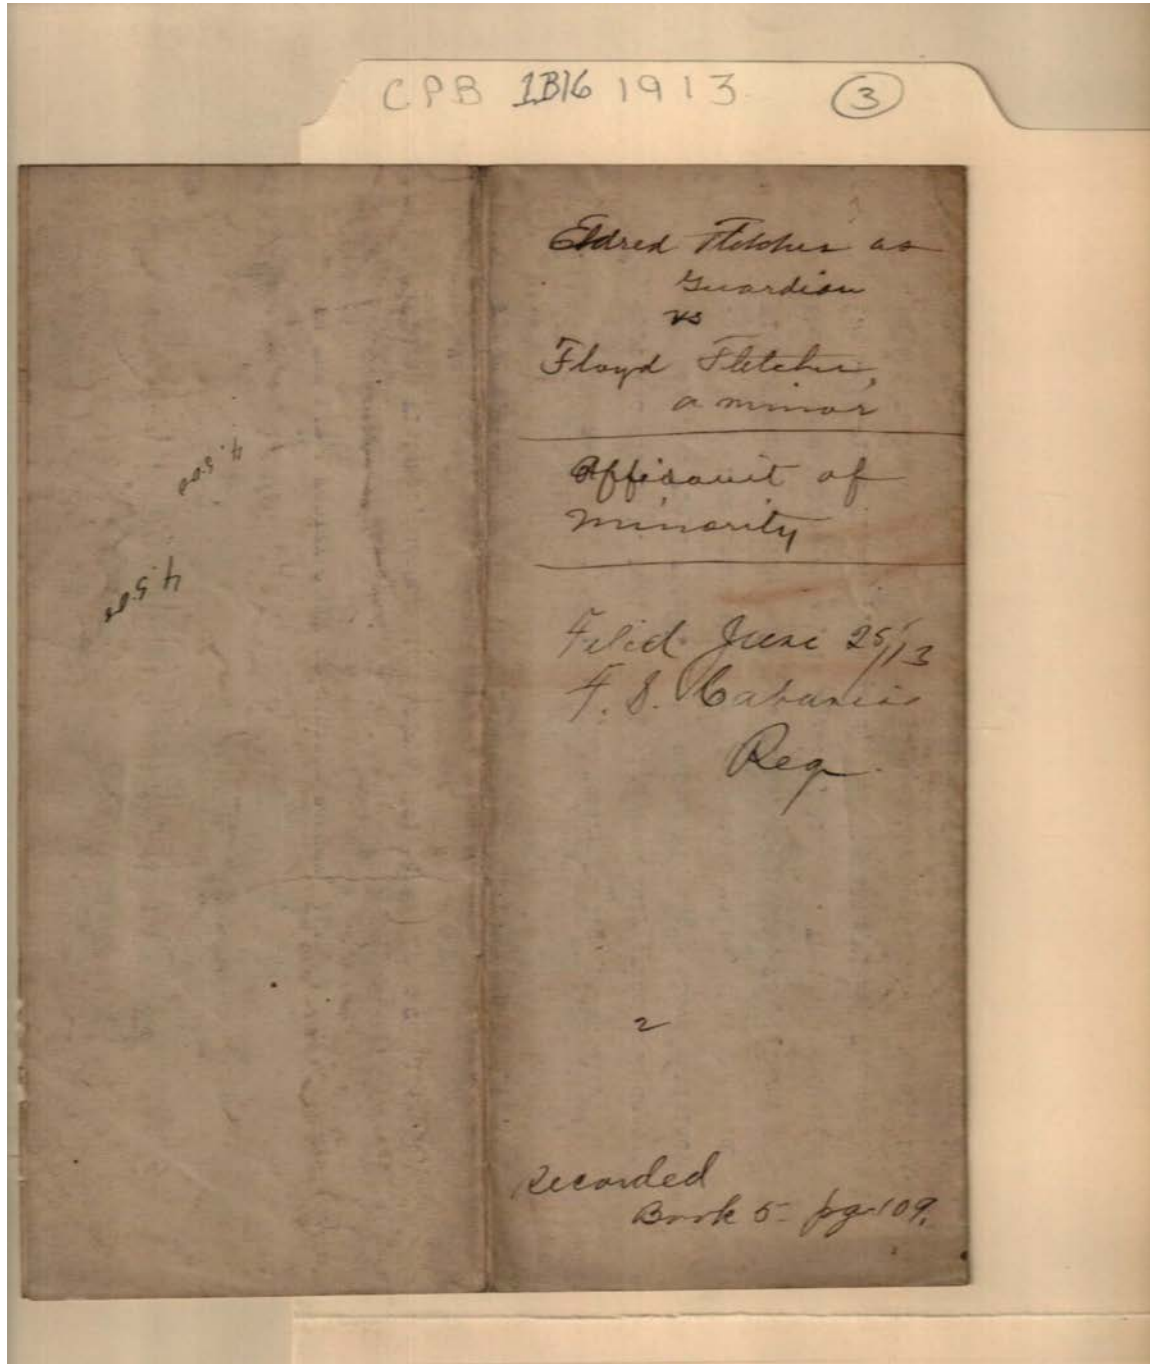 CPB 1B16 1913 3
Eldred Fletcher as
Guardian
vs
Floyd Fletcher,
a minor
Affidavit of
Minority
Filed June 25/13
F. S. Cabaniss
Reg.
2
Recorded
Book 5 - pg. 109.